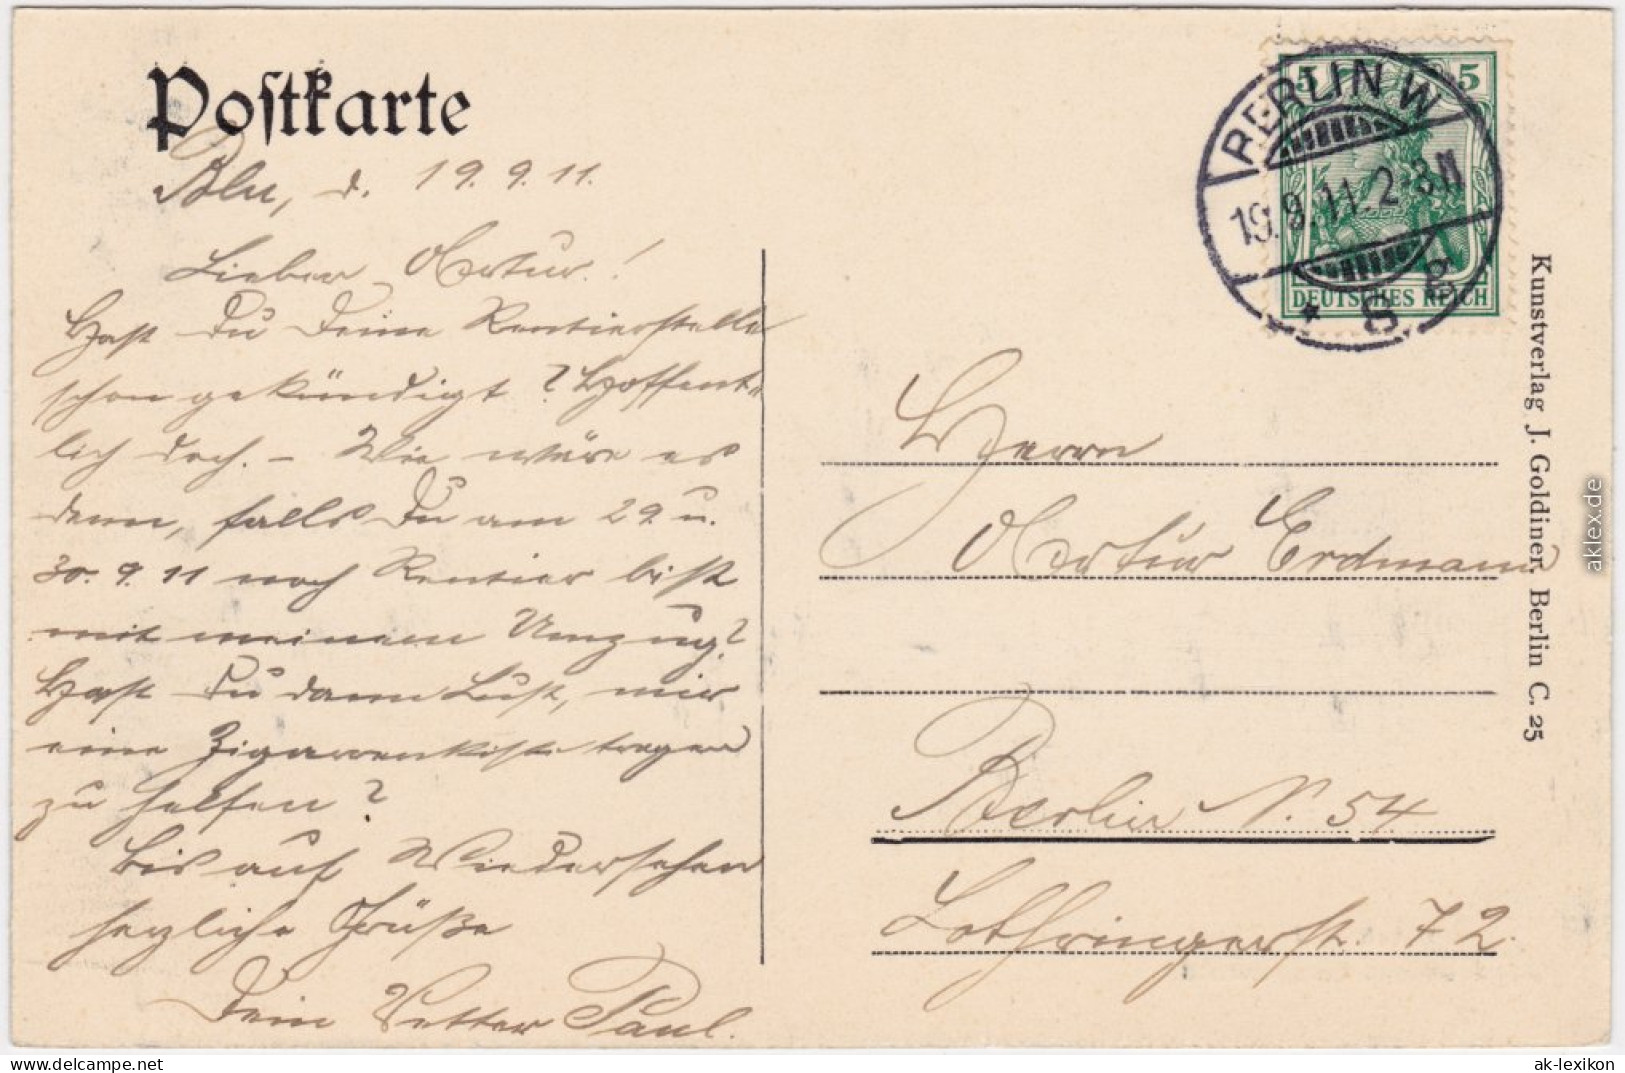 Postkarte
Bln, d. 19.9.11.
Lieber Artur!
Hast Du Deine Rentierstelle
schon gekündigt? Hoffent-
lich doch. – Wie wäre es
denn, falls Du am 29. u.
30.9.11 noch Rentier bist
mit meinem Umzug?
Hast Du dann Lust, mir
eine Zigarrenkiste tragen
zu helfen?
Bis auf Wiedersehen
herzliche Grüße
Dein Vetter Paul.
BERLIN W
19.9.11.2-3N
* 8
5 5
DEUTSCHES REICH
Herrn
Artur Erdmann
Berlin N. 54
Lothringerstr. 72.
Kunstverlag J. Goldiner, Berlin C. 25
aklex.de
www.delcampe.net
ak-lexikon